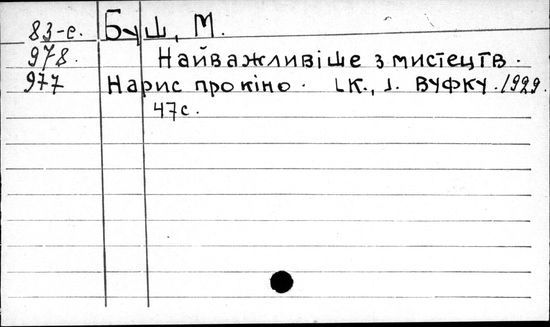 83-е. Буш, М.
978. Найважливіше з мистецтв.
977 Нарис про кіно. [К.], ВУФКУ. 1929.
47с.